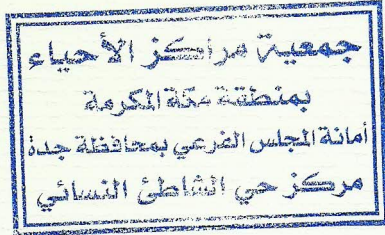 جمعية مراكز الأحياء
بمنطقة مكة المكرمة
أمانة المجلس الفرعي بمحافظة جدة
مركز حي الشاطئ النسائي